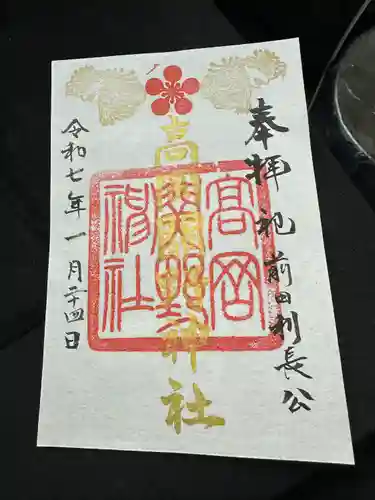 奉拝 祀 前田利長公
高岡関野神社
高岡
關野
神社
令和七年一月二十四日